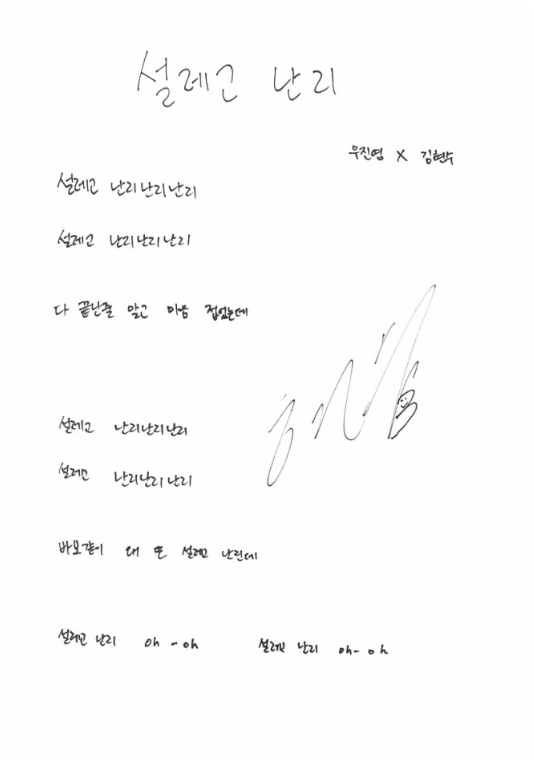 설레고 난리
우진영 X 김현수
설레고 난리난리난리
설레고 난리난리난리
다 끝난줄 알고 마음 접었는데
설레고 난리난리난리
설레고 난리난리난리
바보같이 왜 또 설레고 난린데
설레고 난리 oh - oh 설레고 난리 oh - oh